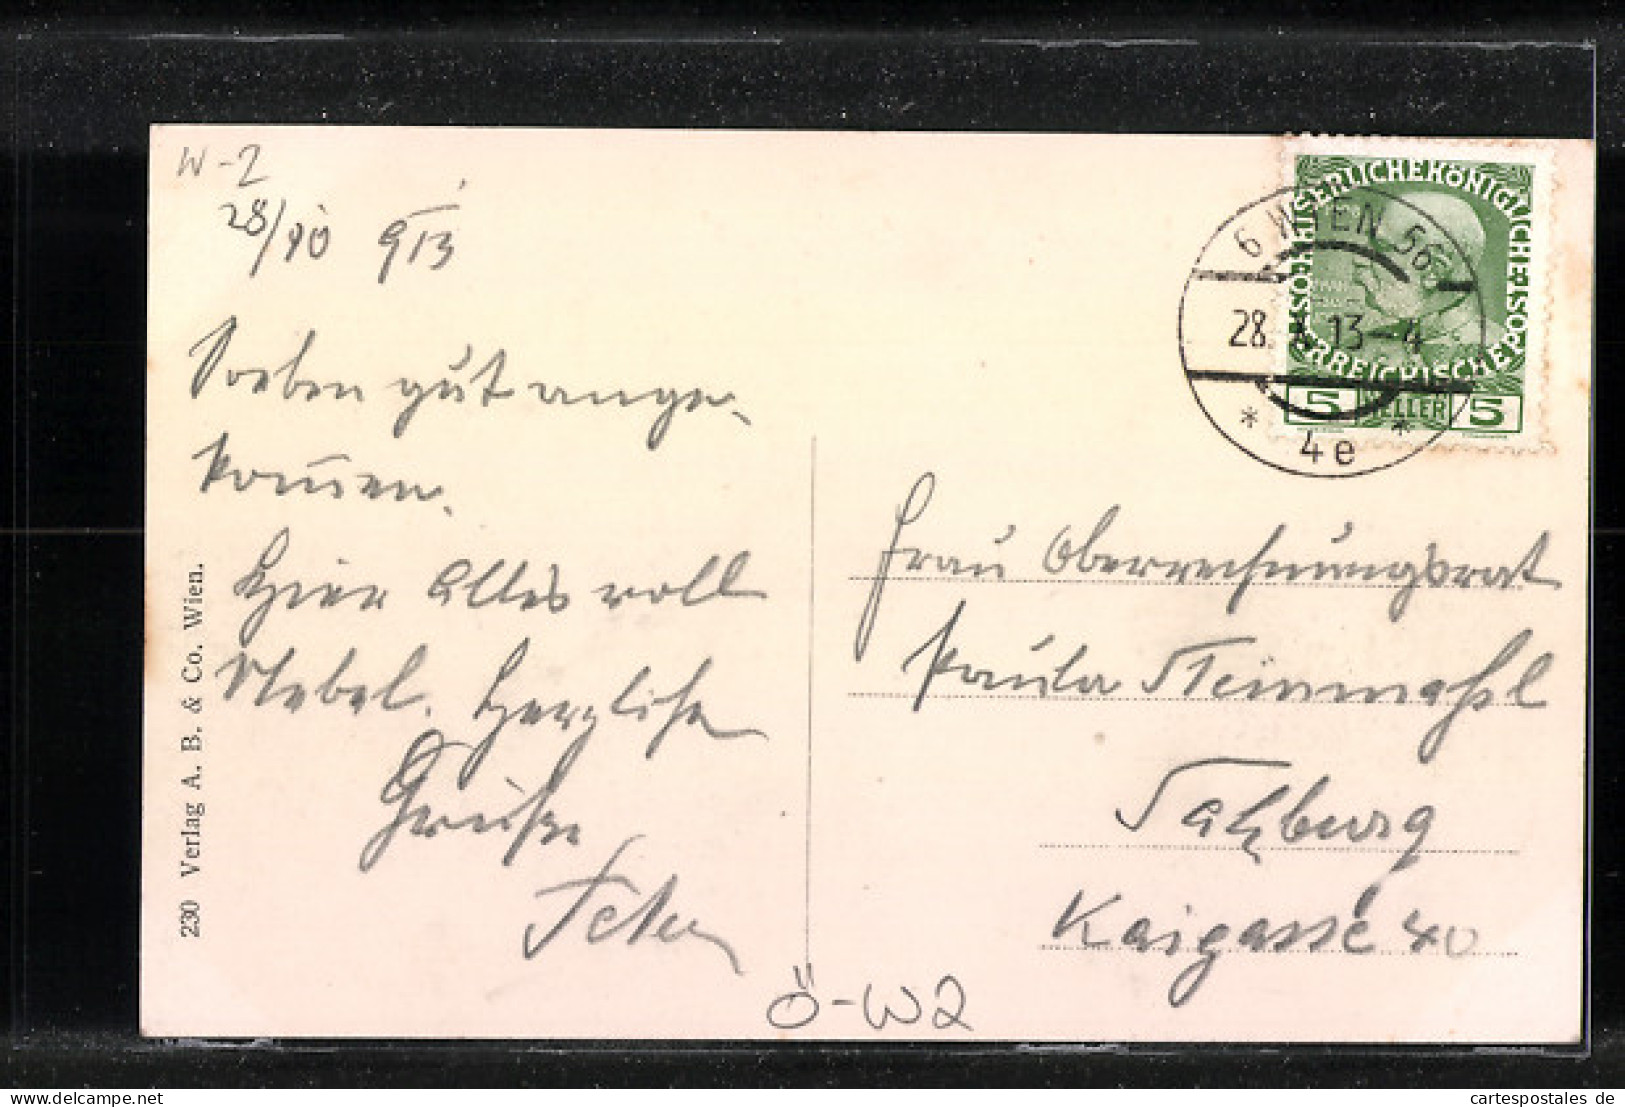 W-2
28/10 913
Soeben gut ange-
kom̅en.
Hier alles voll
Nebel. Herzliche
Grüße
230 Verlag A. B. & Co. Wien.
KAISERLICHE KÖNIGLICHE ÖSTERREICHISCHE POST
5 HELLER 5
6 WIEN 56
28. X. 13-4
* 4e *
Frau Oberrechnungsrat
Paula Steinmaßl
Salzburg
Kaigasse 40
Ö-W2
www.cartespostales.de